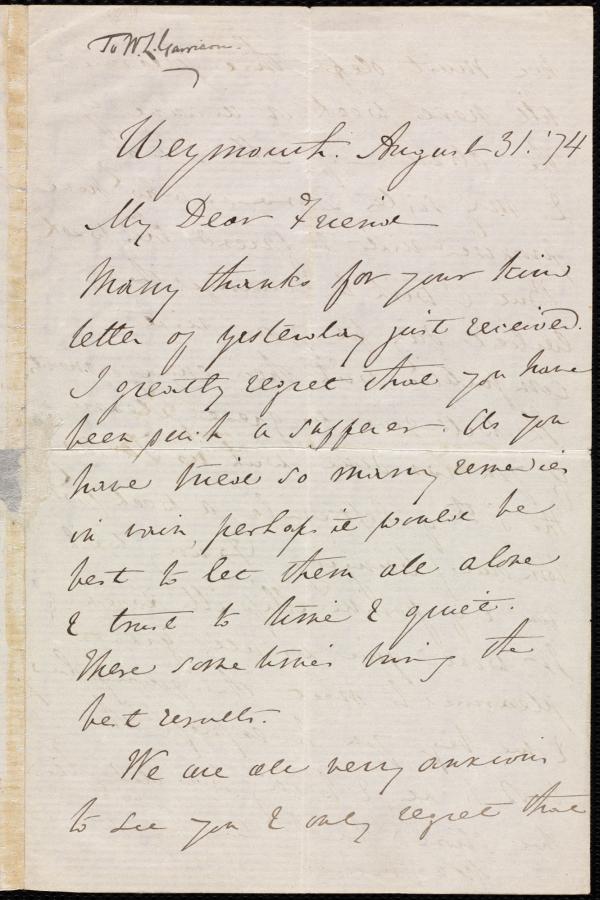 To W. L. Garrison.
Weymouth. August 31. '74
My Dear Friend
Many thanks for your kind
letter of yesterday just received.
I greatly regret that you have
been such a sufferer. As you
have tried so many remedies
in vain, perhaps it would be
best to let them all alone
& trust to time & quiet.
These sometimes bring the
best results.
We are all very anxious
to see you & only regret that